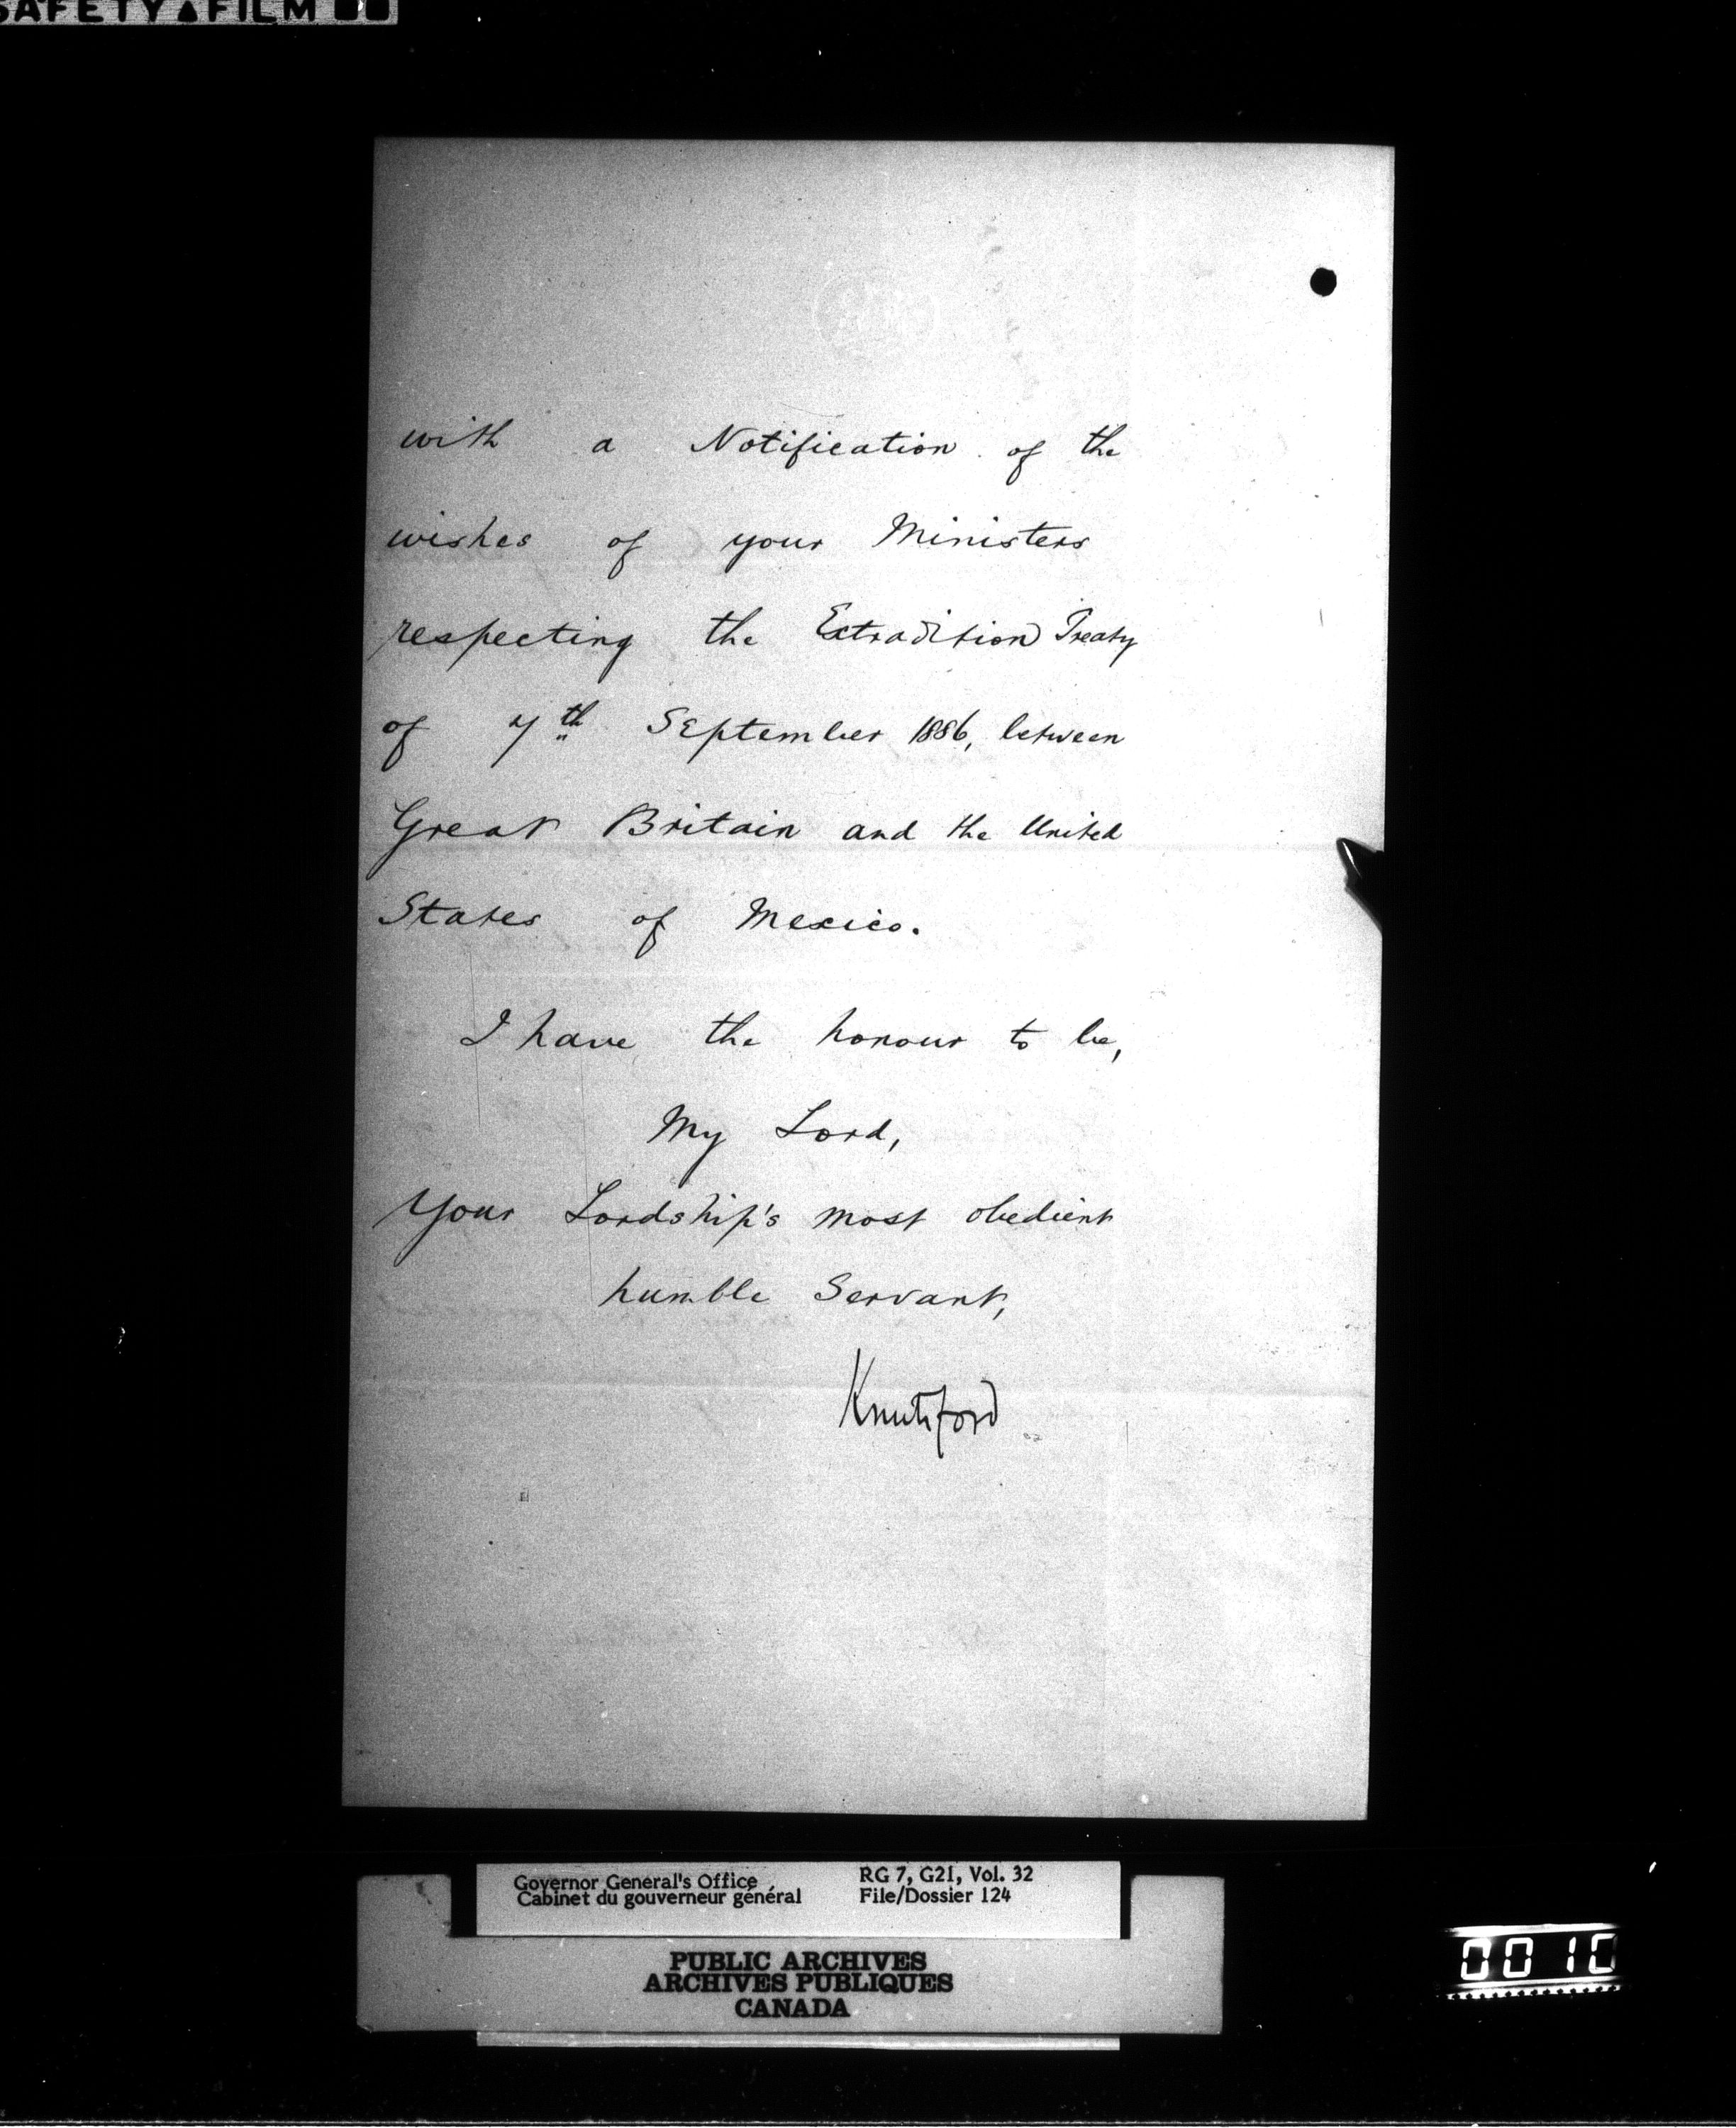 SAFETY▲FILM
with a Notification of the
wishes of your Ministers
respecting the Extradition Treaty
of 7th September 1886, between
Great Britain and the United
States of Mexico.
I have the honour to be,
My Lord,
Your Lordship's most obedient
humble Servant,
Knutsford
Governor General's Office
Cabinet du gouverneur général
RG 7, G21, Vol. 32
File/Dossier 124
PUBLIC ARCHIVES
ARCHIVES PUBLIQUES
CANADA
0010